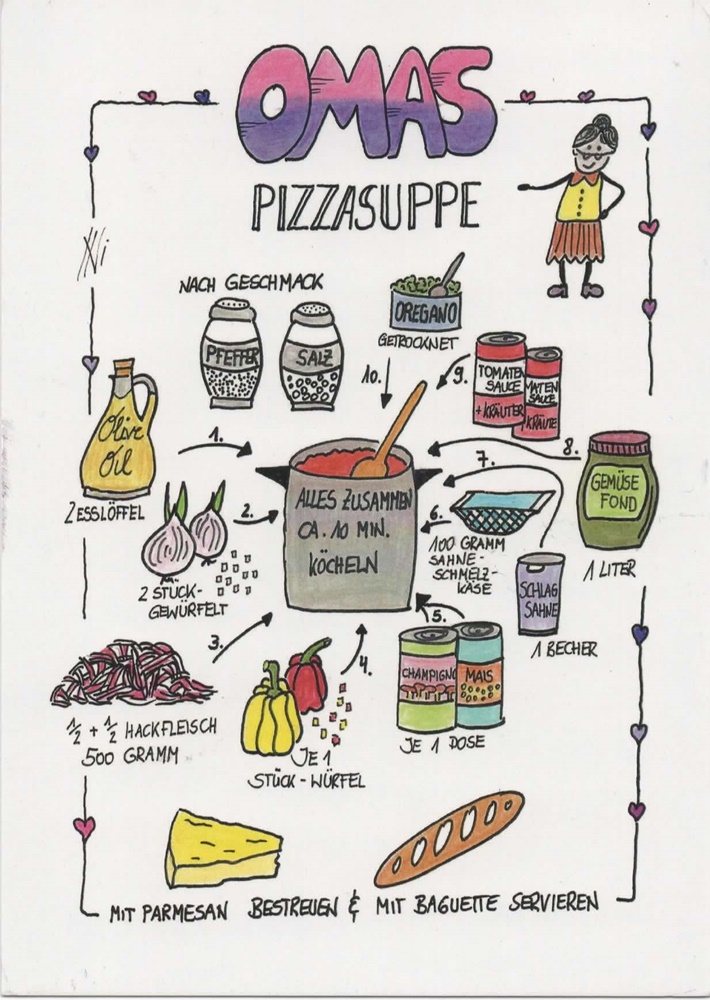 OMAS
PIZZASUPPE
NACH GESCHMACK
PFEFFER
SALZ
OREGANO
GETROCKNET
10.
9.
TOMATEN
SAUCE
+KRÄUTER
MATEN
SAUCE
KRÄUTE
Oliv
Oil
2 ESSLÖFFEL
1.
ALLES ZUSAMMEN
CA. 10 MIN.
KÖCHELN
8.
7.
GEMÜSE
FOND
1 LITER
2.
2 STÜCK-
GEWÜRFELT
6.
100 GRAMM
SAHNE-
SCHMELZ-
KÄSE
SCHLAG
SAHNE
1 BECHER
3.
½ + ½ HACKFLEISCH
500 GRAMM
4.
JE 1
STÜCK-WÜRFEL
5.
CHAMPIGNO
MAIS
JE 1 DOSE
MIT PARMESAN BESTREUEN & MIT BAGUETTE SERVIEREN